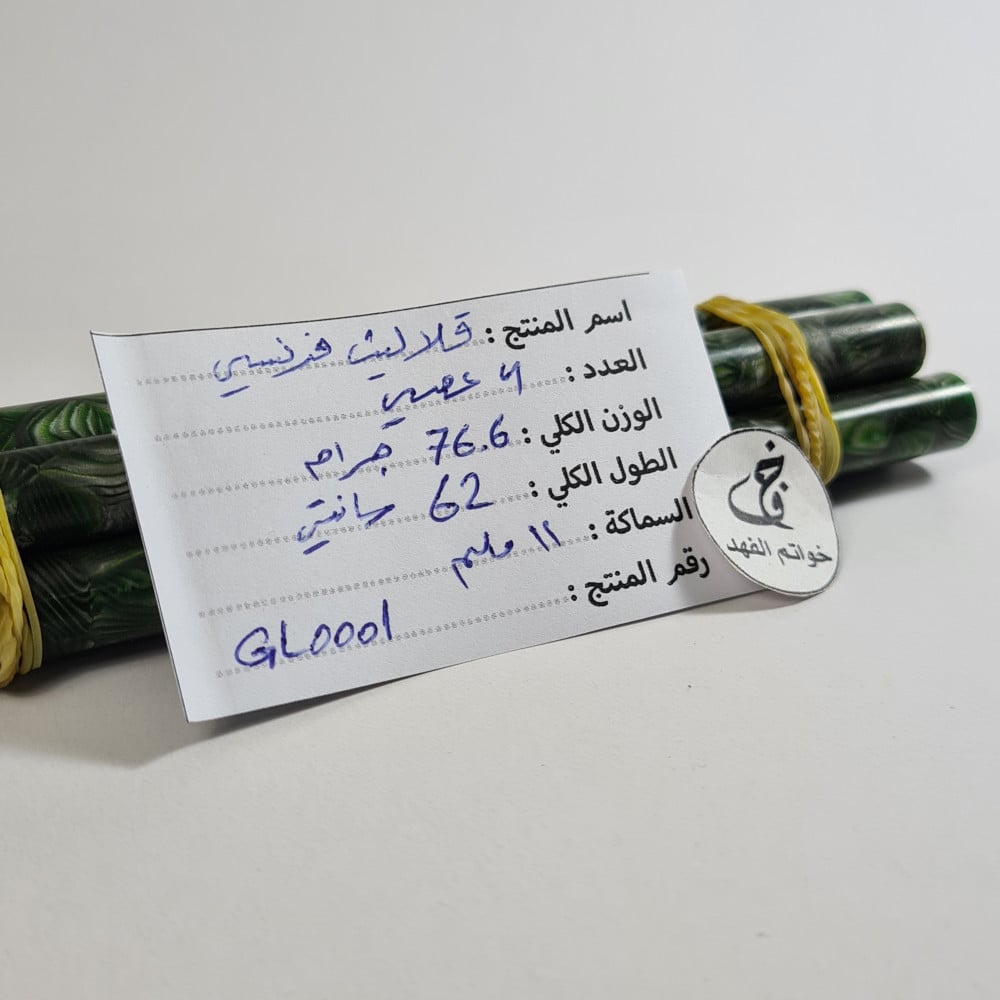 اسم المنتج : قلاليث فرنسي
العدد : ٤ عصي
الوزن الكلي : 76.6 جرام
الطول الكلي : 62 سانتي
السماكة : ١١ مليم
رقم المنتج : GL0001
خواتم الفهد